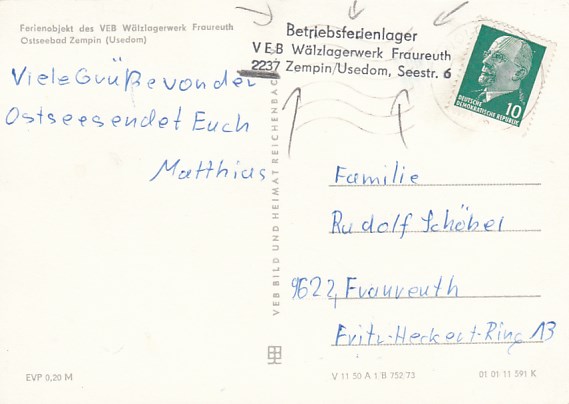 Ferienobjekt des VEB Wälzlagerwerk Fraureuth
Ostseebad Zempin (Usedom)
Viele Grüße von der
Ostsee sendet Euch
Matthias
EVP 0,20 M
VEB BILD UND HEIMAT REICHENBACH
Betriebsferienlager
VEB Wälzlagerwerk Fraureuth
2237 Zempin/Usedom, Seestr. 6
DEUTSCHE
DEMOKRATISCHE REPUBLIK
10
Familie
Rudolf Schöbel
9622, Fraureuth
Fritz-Heckert-Ring 13
V 11 50 A 1/B 752/73
01 01 11 591 K